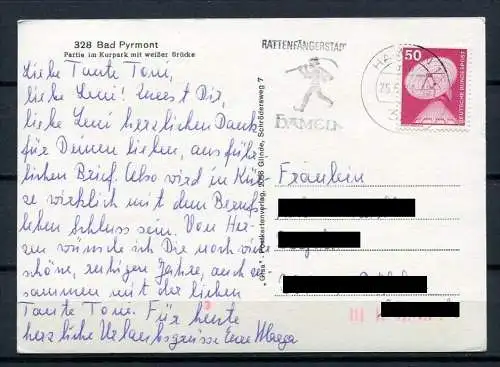 328 Bad Pyrmont
Partie im Kurpark mit weißer Brücke
Liebe Tante Toni,
liebe Leni! Zuerst Dir,
liebe Leni herzlichen Dank
für Deinen lieben, ausführ
lichen Brief. Also wird in Kür
ze wirklich mit dem Berufs
leben Schluss sein. Von Her
zen wünsche ich Dir noch viele
schöne, ruhigen Jahre, auch zu
sammen mit der lieben
Tante Toni. Für heute
herzliche Urlaubsgrüsse Eure
"Grisa", Postkartenverlag, 2056 Glinde, Schrödersweg 7
RATTENFÄNGERSTADT
HAMELN
HA
25.5
50
DEUTSCHE BUNDESPOST
Fräulein